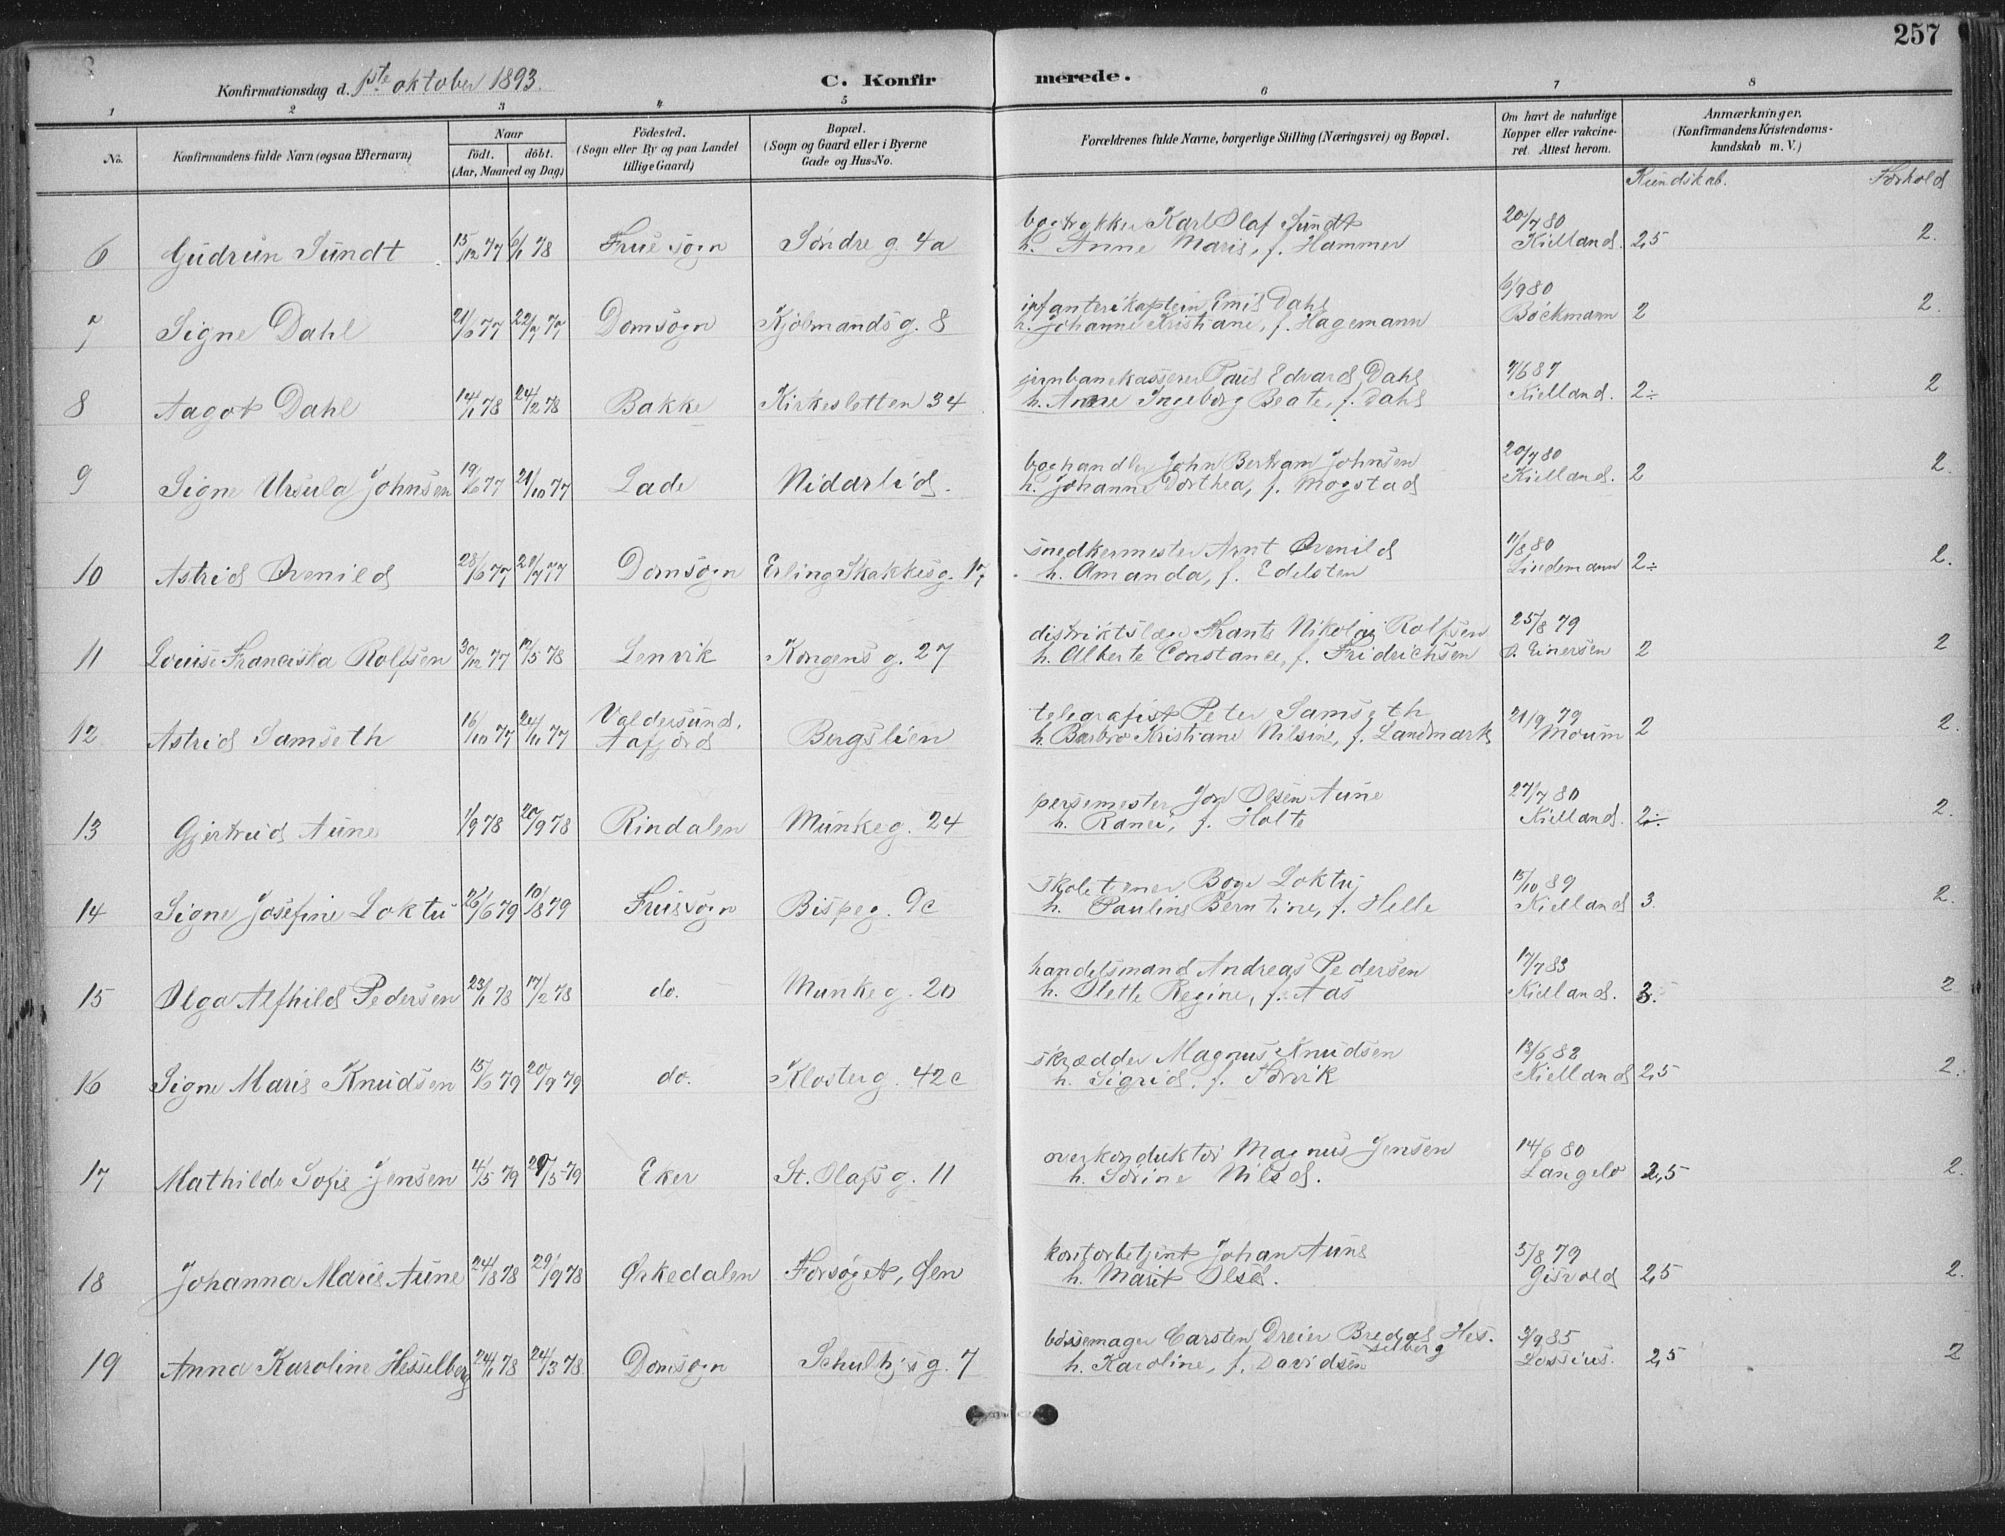 257
Konfirmationsdag d. 1ste oktober 1893.
C. Konfirmerede.
1 2 3 4 5 6 7 8
No.
Konfirmandens fulde Navn (ogsaa Efternavn)
Naar
födt. döbt.
(Aar, Maaned og Dag)
Födested.
(Sogn eller By og paa Landet
tillige Gaard)
Bopæl.
(Sogn og Gaard eller i Byerne
Gade og Hus-No.
Forældrenes fulde Navne, borgerlige Stilling (Næringsvei) og Bopæl.
Om havt de naturlige
Kopper eller vakcine-
ret. Attest herom.
Anmærkninger.
(Konfirmandens Kristendoms-
kundskab m. V.)
Kundskab. Forhold
bogtrykker Karl Olaf Sundt 20/7 80
6 Gudrun Sundt 15/12 77 6/1 78 Frue sogn Söndre g. 4a h. Anne Marie, f. Hammer Kielland. 2,5 2.
infanterikaptein Emil Dahl 6/9 80
7 Signe Dahl 21/6 77 22/7 77 Domsogn Kjöbmands g. 8 h. Johanne Kristiane, f. Hagemann Böckmann 2 2.
jernbanekasserer Paul Edvard Dahl 7/6 87
8 Aagot Dahl 14/1 78 24/2 78 Bakke Kirkesletten 34 h. Anne Ingeborg Beate, f. Dahl Kielland. 2÷ 2
boghandler John Bertram Johnsen 20/7 80
9 Signe Ursula Johnsen 19/6 77 21/10 77 Lade Nidarlid. h. Johanne Dorthea, f. Mogstad Kielland. 2 2.
snedkermester Arnt Ovenild 11/8 80
10 Astrid Ovenild 28/6 77 29/7 77 Domsogn Erling Skakkes g. 17 h. Amanda, f. Edelsten Lindemann 2÷ 2.
distriktslæge Frants Nikolai Rolfsen 25/8 79
11 Louise Franciska Rolfsen 30/12 77 12/5 78 Lenvik Kongens g. 27 h. Alberte Constance, f. Fridrichsen O. Einersen 2 2
Valdersund, telegrafist Peter Samseth 21/9 79
12 Astrid Samseth 16/10 77 24/11 77 Aafjord Bergslien h. Barbro Kristiane Nilsine, f. Landmark Moum 2 2.
persemester Jon Olsen Aune 27/7 80
13 Gjertrud Aune 1/9 78 20/9 78 Rindalen Munkeg. 24 h. Ranei, f. Holte Kielland. 2÷ 2.
skoletjener Boye Loktu 15/10 89
14 Signe Josefine Loktu 26/6 79 10/8 79 Fruesogn Bispeg. 9c h. Pauline Berntine, f. Helle Kielland 3. 2.
handelsmand Andreas Pedersen 17/7 83
15 Olga Alfhild Pedersen 23/1 78 17/2 78 do. Munkeg. 20 h. Olette Regine, f. Aas Kielland. 3. 2.
skrædder Magnus Knudsen 13/6 82
16 Signe Marie Knudsen 15/6 79 20/9 79 do. Klosterg. 42c h. Sigrid, f. Kielland 2,5 2.
overkonduktör Magnus Jensen 14/6 80
17 Mathilde Sofie Jensen 4/5 79 29/5 79 Eker St. Olafs g. 11 h. Sörine Nilsd. Langelo 2,5 2.
kontorbetjent Johan Aune 5/8 79
18 Johanna Marie Aune 24/8 78 29/9 78 Ørkedalen Forsøget, Øen h. Marit Olsd. Gisvold 2,5 2.
bössemager Carsten Dreier Bredal Hes- 3/9 85
selberg
19 Anna Karoline Hesselberg 24/1 78 24/3 78 Domsogn Schultzs g. 7 h. Karoline, f. Davidsen Lossius. 2,5 2